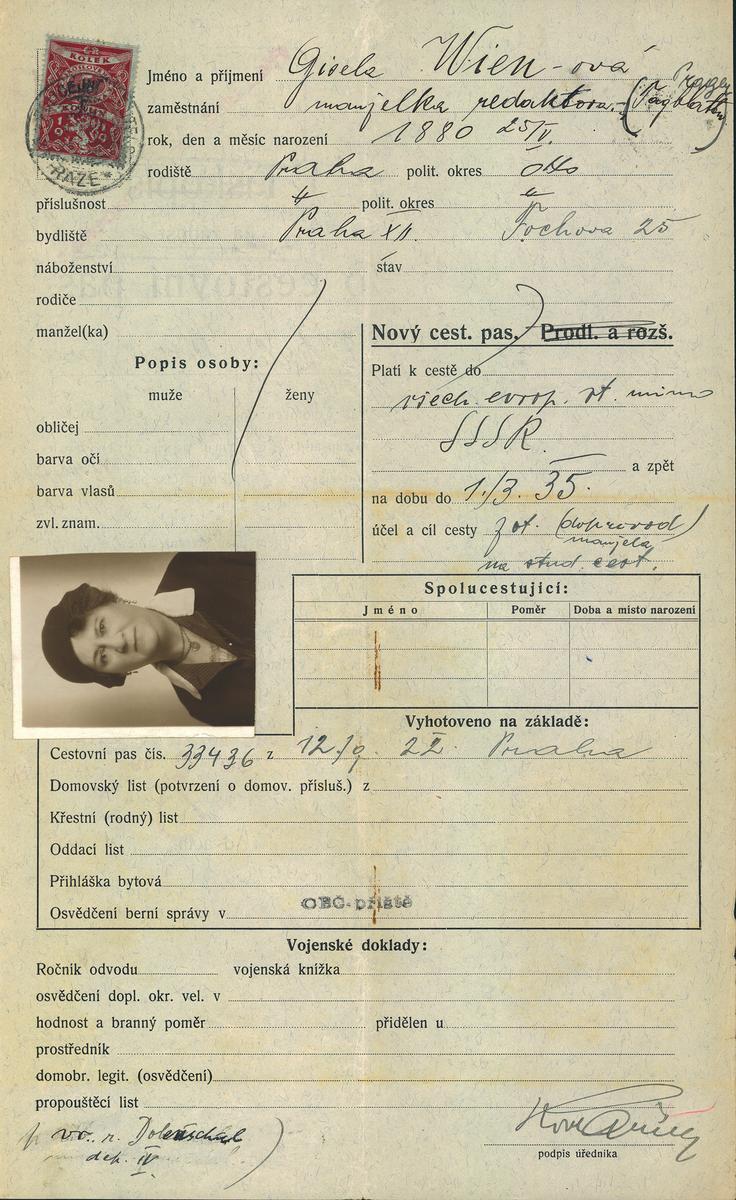 KOLEK
Jméno a příjmení Gisela Wien-ová
zaměstnání manželka redaktora. (Prager Tagblatt)
rok, den a měsíc narození 1880 25/V.
rodiště Praha polit. okres dtto
příslušnost " polit. okres "
bydliště Praha XII. Fochova 25
náboženství stav
rodiče
manžel(ka)
Nový cest. pas. Prodl. a rozš.
Popis osoby:
muže ženy
obličej
barva očí
barva vlasů
zvl. znam.
Platí k cestě do
všech. evrop. st. mimo
SSSR.
a zpět
na dobu do 1./3. 35.
účel a cíl cesty (doprovod)
manžela
na stud. cest.
Spolucestující:
Jméno Poměr Doba a místo narození
Vyhotoveno na základě:
Cestovní pas čís. 33436 z 12./9. Praha
Domovský list (potvrzení o domov. přísluš.) z
Křestní (rodný) list
Oddací list
Přihláška bytová
Osvědčení berní správy v OBČ. příště
Vojenské doklady:
Ročník odvodu vojenská knížka
osvědčení dopl. okr. vel. v
hodnost a branný poměr přidělen u
prostředník
domobr. legit. (osvědčení)
propouštěcí list
podpis úředníka